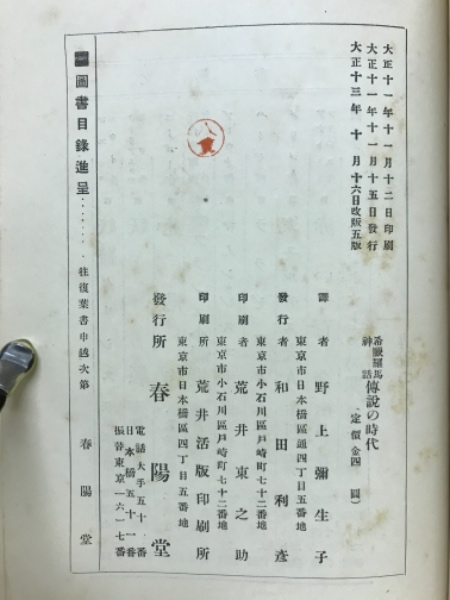 大正十一年十一月十二日印刷
大正十一年十一月十五日發行
大正十三年十月十六日改版五版
希臘羅馬神話 傳說の時代
(定價金四圓)
譯者 野上彌生子
東京市日本橋區通四丁目五番地
發行者 和田利彥
東京市小石川區戶崎町七十二番地
印刷者 荒井東之助
東京市小石川區戶崎町七十二番地
印刷所 荒井活版印刷所
東京市日本橋區四丁目五番地
發行所 春陽堂
電話大手五十一番
日本橋五十一番
振替東京一六一七番
圖書目錄進呈……・往復葉書申越次第 春陽堂